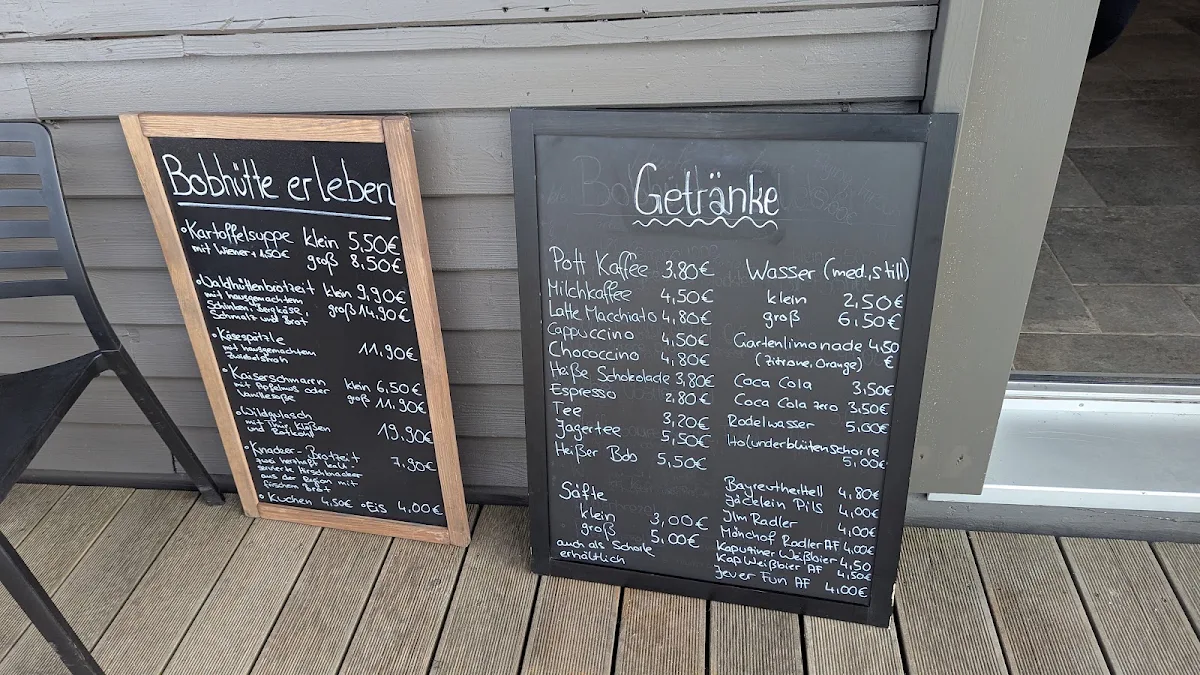 Bobhütte erleben
• Kartoffelsuppe klein 5,50€
mit Wiener + 1,50€ groß 8,50€
• Waldhüttenbrotzeit klein 9,90€
mit hausgemachtem groß 14,90€
Schinken, Bergkäse,
Schmalz und Brot
• Käsespätzle
mit hausgemachtem 11,90€
Zwiebelstroh
• Kaiserschmarrn klein 6,50€
mit Apfelmus oder groß 11,90€
Vanillesoße
• Wildgulasch
mit Thür. Klößen 19,90€
und Rotkohl
• Knacker-Brotzeit
zwei herzhaft kalt- 7,90€
servierte Hirschknacker
aus der Region mit
frischem Brot
• Kuchen 4,50€ • Eis 4,00€
Getränke
Pott Kaffee 3,80€
Milchkaffee 4,50€
Latte Macchiato 4,80€
Cappuccino 4,50€
Chococcino 4,80€
Heiße Schokolade 3,80€
Espresso 2,80€
Tee 3,20€
Jagertee 5,50€
Heißer Bob 5,50€
Säfte
klein 3,00€
groß 5,00€
auch als Schorle
erhältlich
Wasser (med., still)
klein 2,50€
groß 6,50€
Gartenlimonade 4,50
(Zitrone, Orange) €
Coca Cola 3,50€
Coca Cola zero 3,50€
Rodelwasser 5,00€
Holunderblütenschorle
5,00€
Bayreuther Hell 4,80€
Jäcklein Pils 4,00€
Ilm Radler 4,00€
Mönchof Radler AF 4,00€
Kapuziner Weißbier 4,50
Kap Weißbier AF 4,50€
Jever Fun AF 4,00€